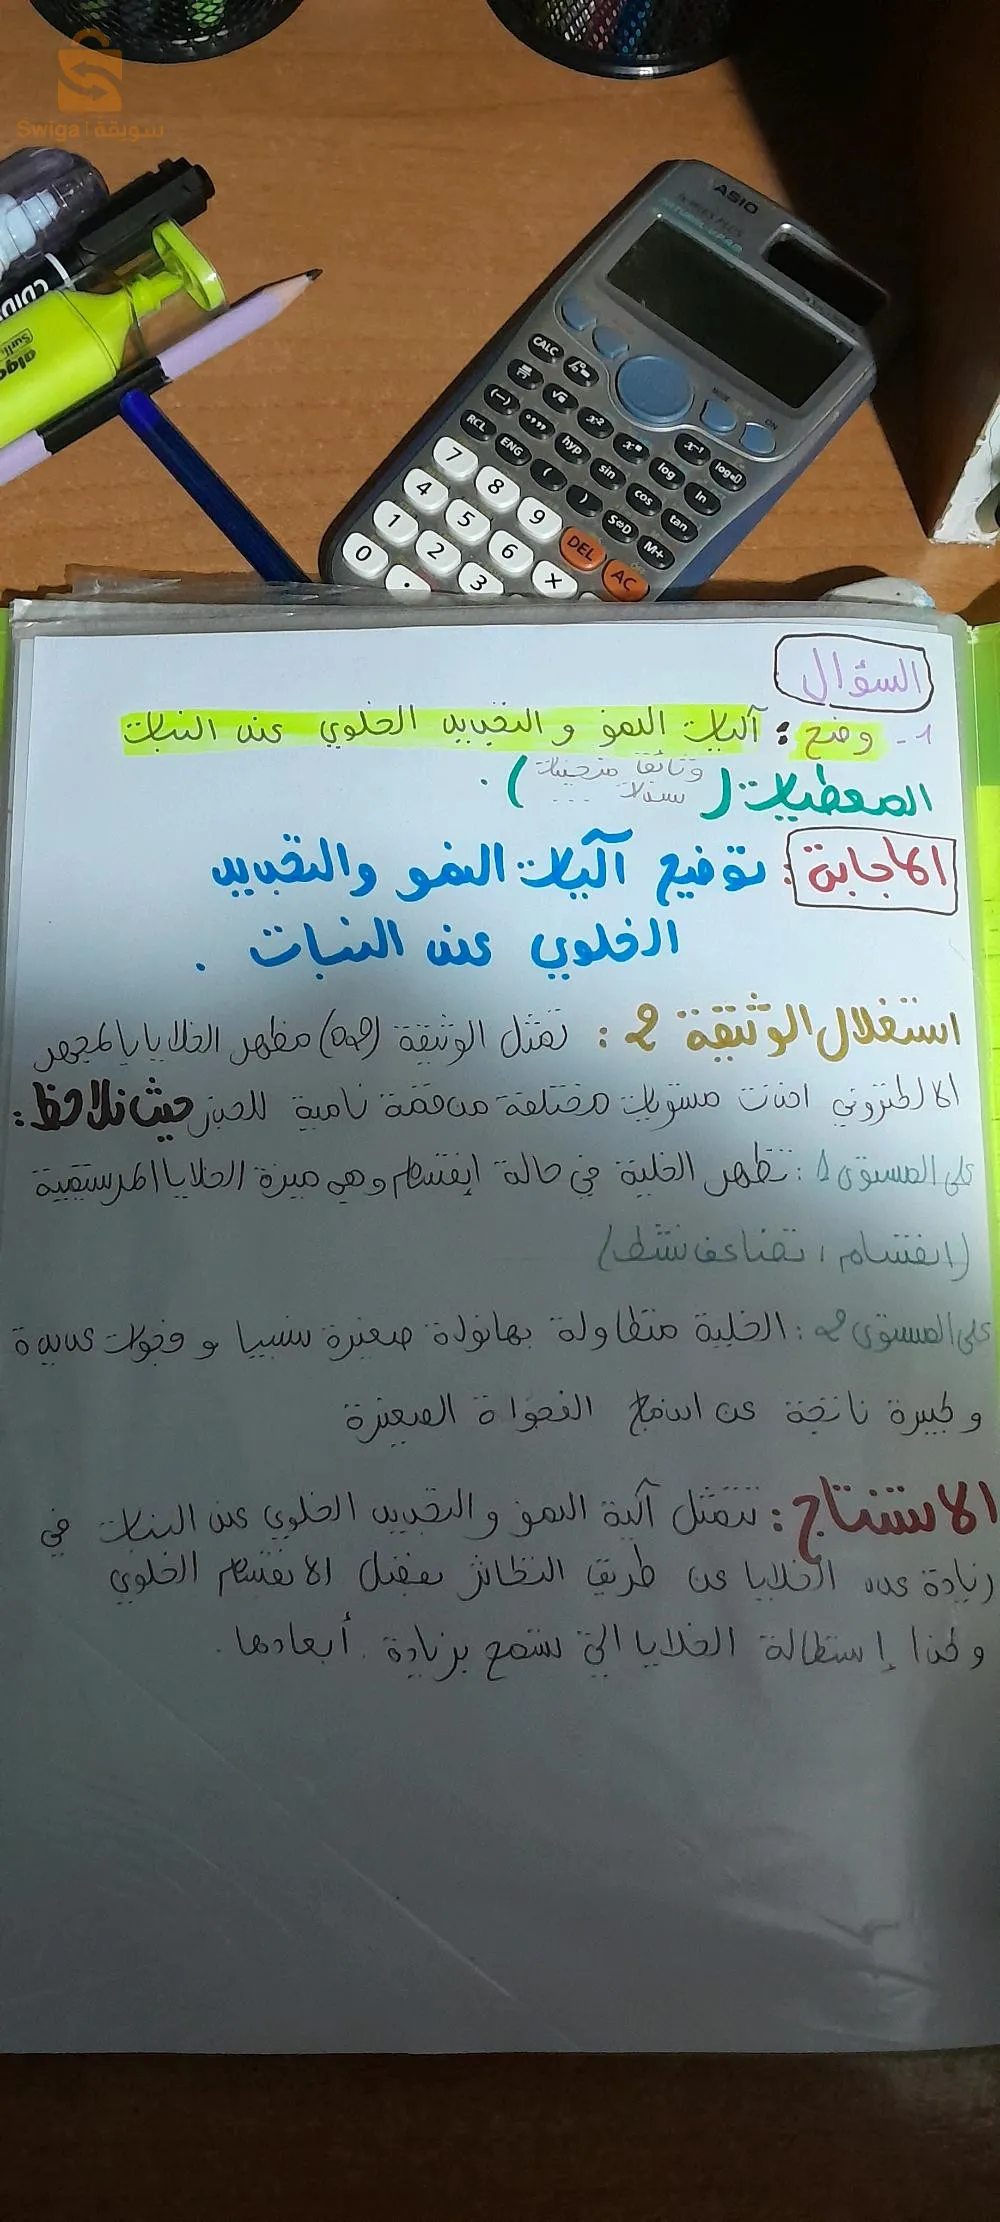 Swiga | سويقة
ASIO
CALC
RCL ENG ( ) S⇔D M+
(−) hyp sin cos tan
log ln
ON
7 8 9 DEL AC
4 5 6 ×
1 2 3
0 .
السؤال
1- وضح : آليات النمو و التجديد الخلوي عند النبات
المعطيات ( وثائق منحنيات
سندات ... ) .
الإجابة : توضيح آليات النمو والتجديد
الخلوي عند النبات .
استغلال الوثيقة 2 : تمثل الوثيقة (2) مظهر الخلايا بالمجهر
الالكتروني اخذت مستويات مختلفة من قمة نامية للجذر حيث نلاحظ :
على المستوى 1 : تظهر الخلية في حالة إنقسام وهي ميزة الخلايا المرستيمية
(انقسام ، تضاعف نشط)
على المستوى 2 : الخلية متطاولة بها نواة صغيرة نسبيا و فجوات عديدة
و كبيرة ناتجة عن اندماج الفجواة الصغيرة
الاستنتاج : تتمثل آلية النمو و التجديد الخلوي عند النبات في
زيادة عدد الخلايا عن طريق التكاثر بفضل الانقسام الخلوي
و كذا إستطالة الخلايا التي تسمح بزيادة أبعادها .